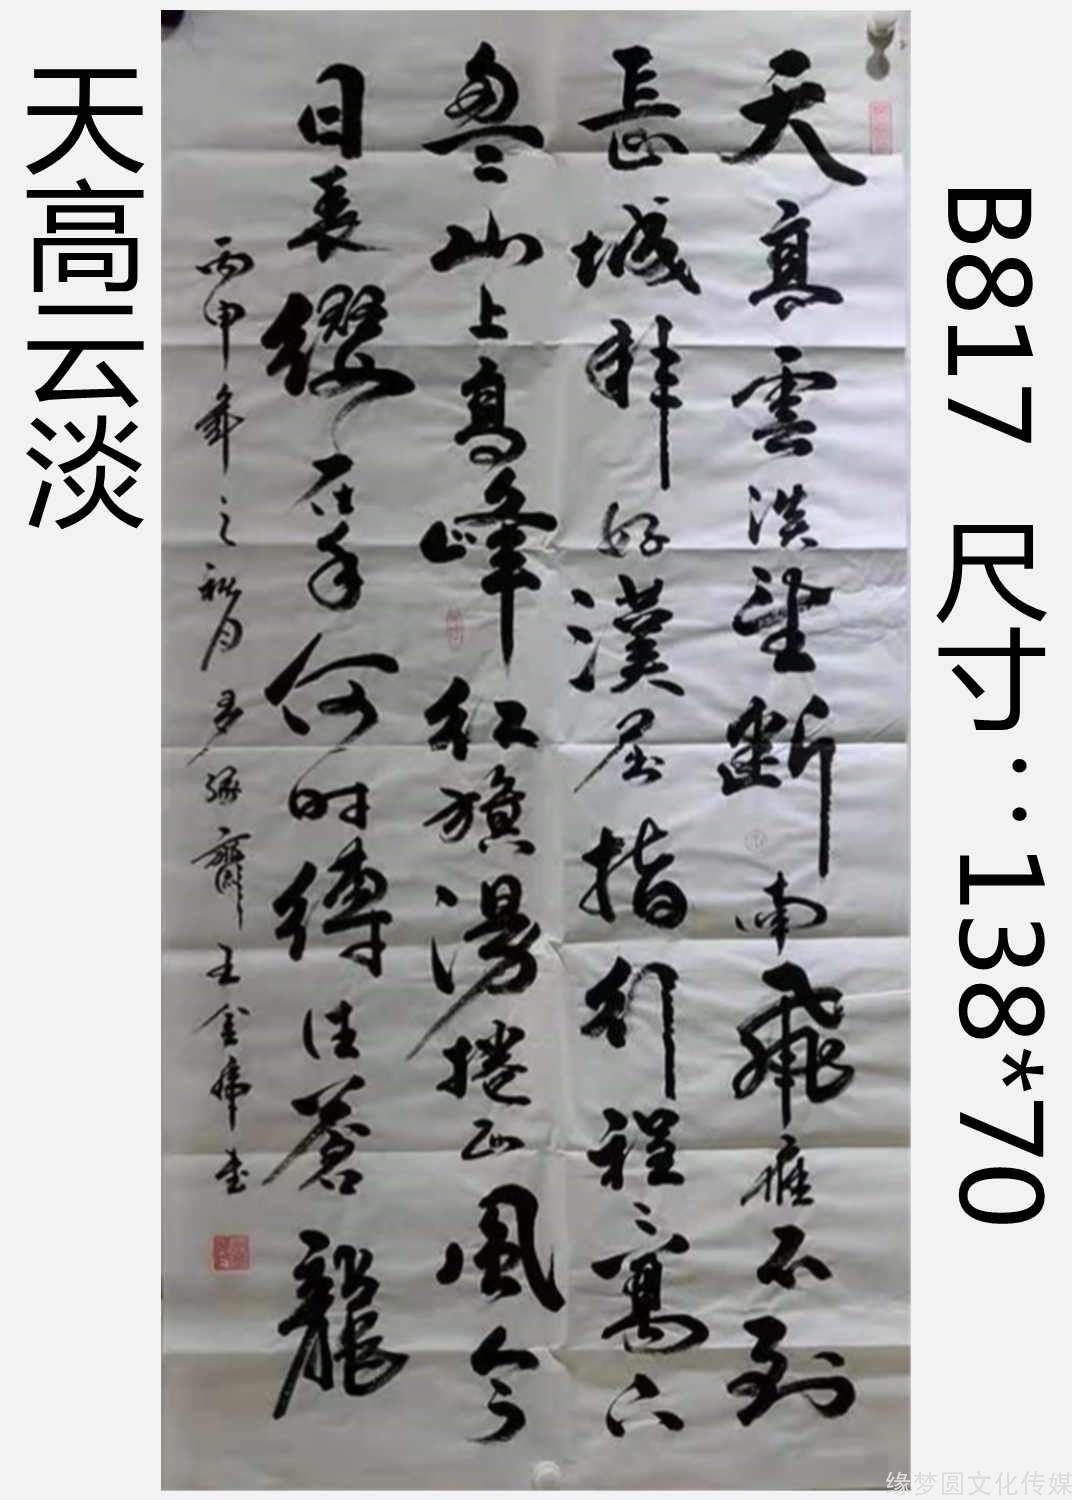 天高云淡
B817 尺寸：138*70
天高雲淡望斷南飛雁不到
長城非好漢屈指行程二萬六
盤山上高峰紅旗漫捲西風今
日長纓在手何時縛住蒼龍
丙申年之秋月 齋王金 書
缘梦圆文化传媒